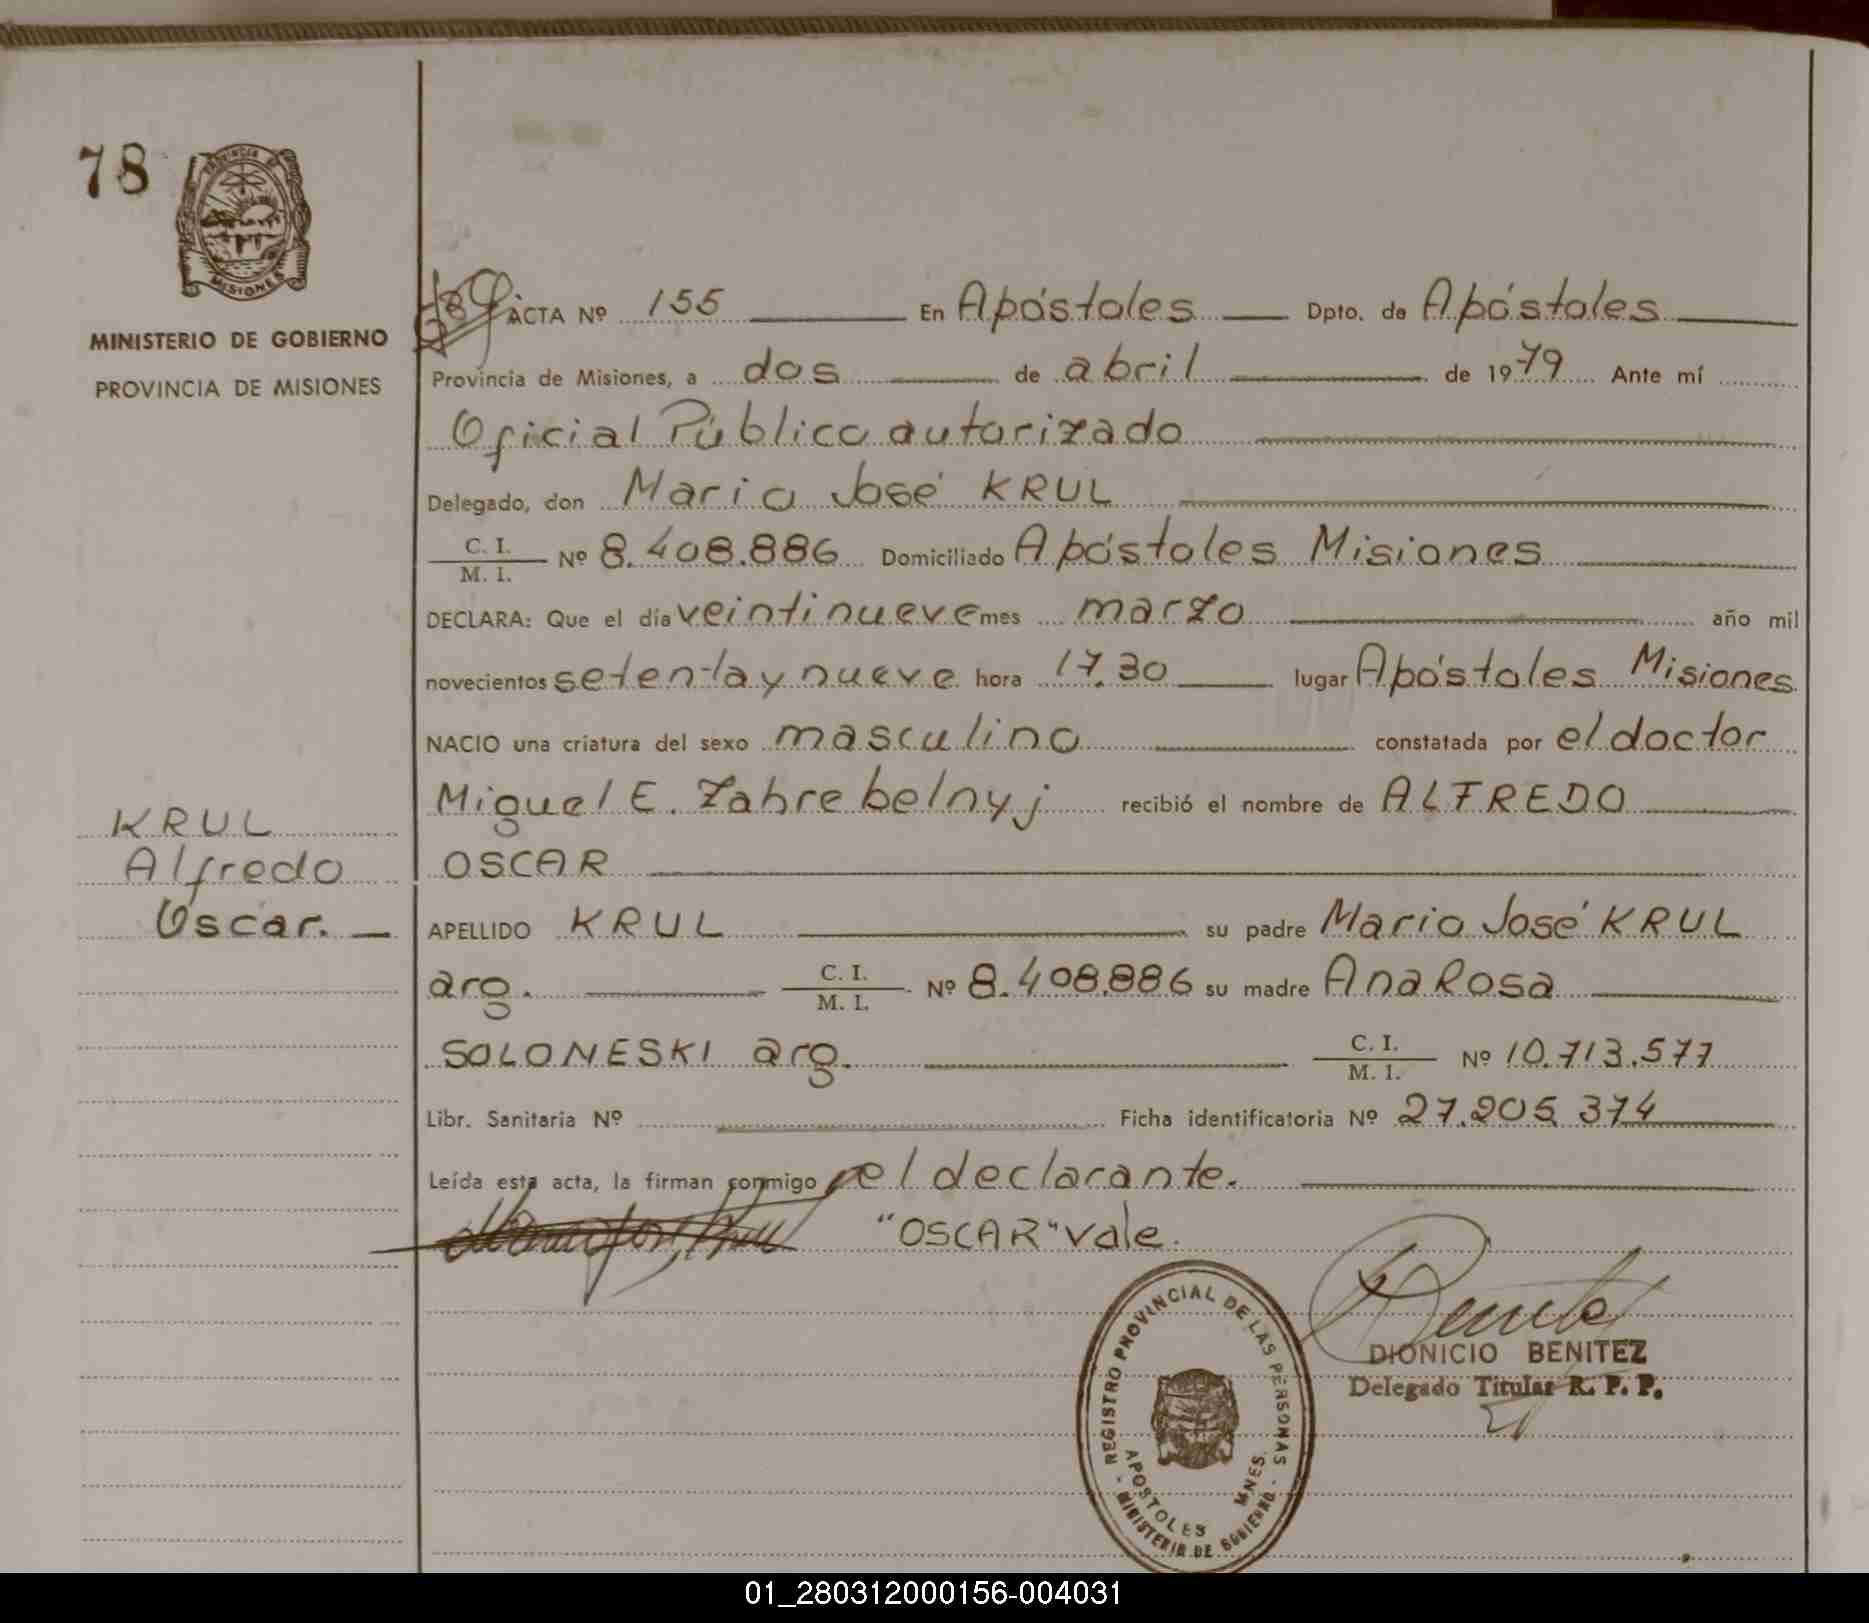 78
PROVINCIA DE
MISIONES
MINISTERIO DE GOBIERNO
PROVINCIA DE MISIONES
KRUL
Alfredo
Oscar.
ACTA Nº 155 En Apóstoles Dpto. de Apóstoles
Provincia de Misiones, a dos de abril de 1979 Ante mí
Oficial Público autorizado
Delegado, don Mario José KRUL
C. I.
M. I. Nº 8.408.886 Domiciliado Apóstoles Misiones
DECLARA: Que el día veintinueve mes marzo año mil
novecientos setenta y nueve hora 17.30 lugar Apóstoles Misiones
NACIO una criatura del sexo masculino constatada por el doctor
Miguel E. Zahrebelnyj recibió el nombre de ALFREDO
OSCAR
APELLIDO KRUL su padre Mario José KRUL
arg. C. I.
M. I. Nº 8.408.886 su madre Ana Rosa
SOLONESKI arg. C. I.
M. I. Nº 10.713.577
Libr. Sanitaria Nº Ficha identificatoria Nº 27.205.374
Leída esta acta, la firman conmigo el declarante.
"OSCAR" vale.
DIONICIO BENITEZ
Delegado Titular R. P. P.
REGISTRO PROVINCIAL DE LAS PERSONAS
APOSTOLES MNES.
MINISTERIO DE GOBIERNO
01_280312000156-004031